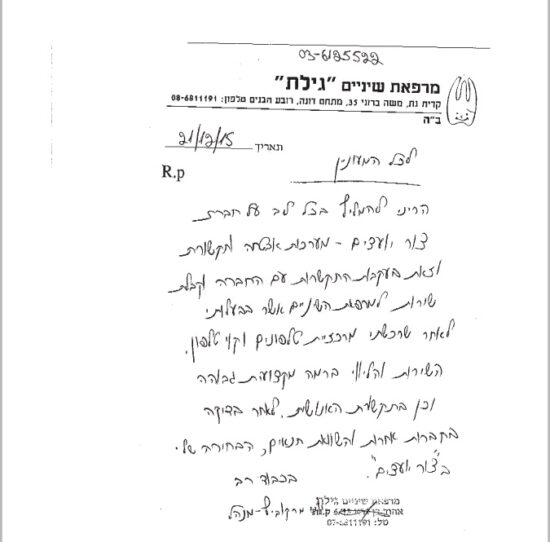 03-6125522
מרפאת שיניים "גילת"
קרית גת, משה ברוני 35, מתחם דונה, רובע הבנים טלפון: 08-6811191
ב"ה
תאריך 21/12/15
R.p
לכל המעונין
הריני להמליץ בכל לב על חברת
צור יועצים - מערכות אבטחה ותקשורת
וזאת בעקבות התקשרות עם החברה וקבלת
שירות למרפאת השיניים אשר בבעלותי
לאחר שרכשתי מרכזית טלפונים וקווי טלפון.
השירות והליווי ברמה מקצועית גבוהה
וכן בתקשורת האנושית. לאחר בדיקה
בחברות אחרות והשוואת תנאים, הבחירה שלי
ב"צור יועצים".
בכבוד רב
מרפאת שיניים גילת
מרקוביץ - מנהל
טל: 07-6811191